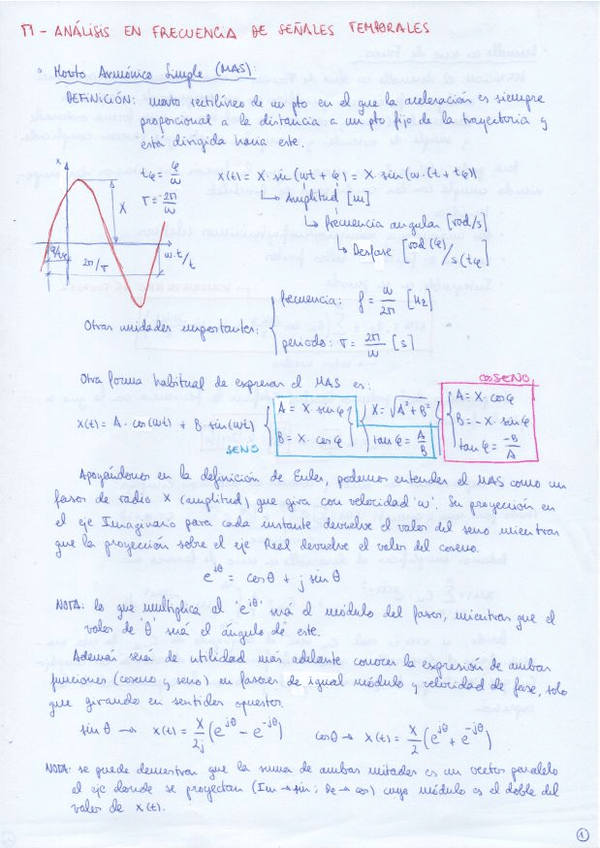 T1 - ANÁLISIS EN FRECUENCIA DE SEÑALES TEMPORALES
• Movto Armónico Simple (MAS):
DEFINICIÓN: movto rectilíneo de un pto en el que la aceleración es siempre
proporcional a la distancia a un pto fijo de la trayectoria y
está dirigida hacia este.
x
X
φ/tφ
2π/T
w·t/t
tφ = φ/w
T = 2π/w
x(t) = X · sin(wt + φ) = X · sin(w·(t + tφ))
↳ Amplitud [m]
↳ Frecuencia angular [rad/s]
↳ Desfase [rad (φ)/s (tφ)]
Otras unidades importantes:
frecuencia: f = w/2π [Hz]
periodo: T = 2π/w [s]
Otra forma habitual de expresar el MAS es:
COSENO
x(t) = A · cos(wt) + B · sin(wt)
A = X · sin φ
B = X · cos φ
SENO
X = √(A² + B²)
tan φ = A/B
A = X · cos φ
B = -X · sin φ
tan φ = -B/A
Apoyándonos en la definición de Euler, podemos entender el MAS como un
fasor de radio X (amplitud) que gira con velocidad 'w'. Su proyección en
el eje Imaginario para cada instante devuelve el valor del seno mientras
que la proyección sobre el eje Real devuelve el valor del coseno.
e^{jθ} = cos θ + j sin θ
NOTA: lo que multiplica al 'e^{jθ}' será el módulo del fasor, mientras que el
valor de 'θ' será el ángulo de este.
Además será de utilidad más adelante conocer la expresión de ambas
funciones (coseno y seno) en fasores de igual módulo y velocidad de fase, solo
que girando en sentidos opuestos.
sin θ → x(t) = X/2j (e^{jθ} - e^{-jθ}) cos θ → x(t) = X/2 (e^{jθ} + e^{-jθ})
NOTA: se puede demostrar que la suma de ambas mitades es un vector paralelo
al eje donde se proyectan (Im → sin; Re → cos) cuyo módulo es el doble del
valor de x(t).
1